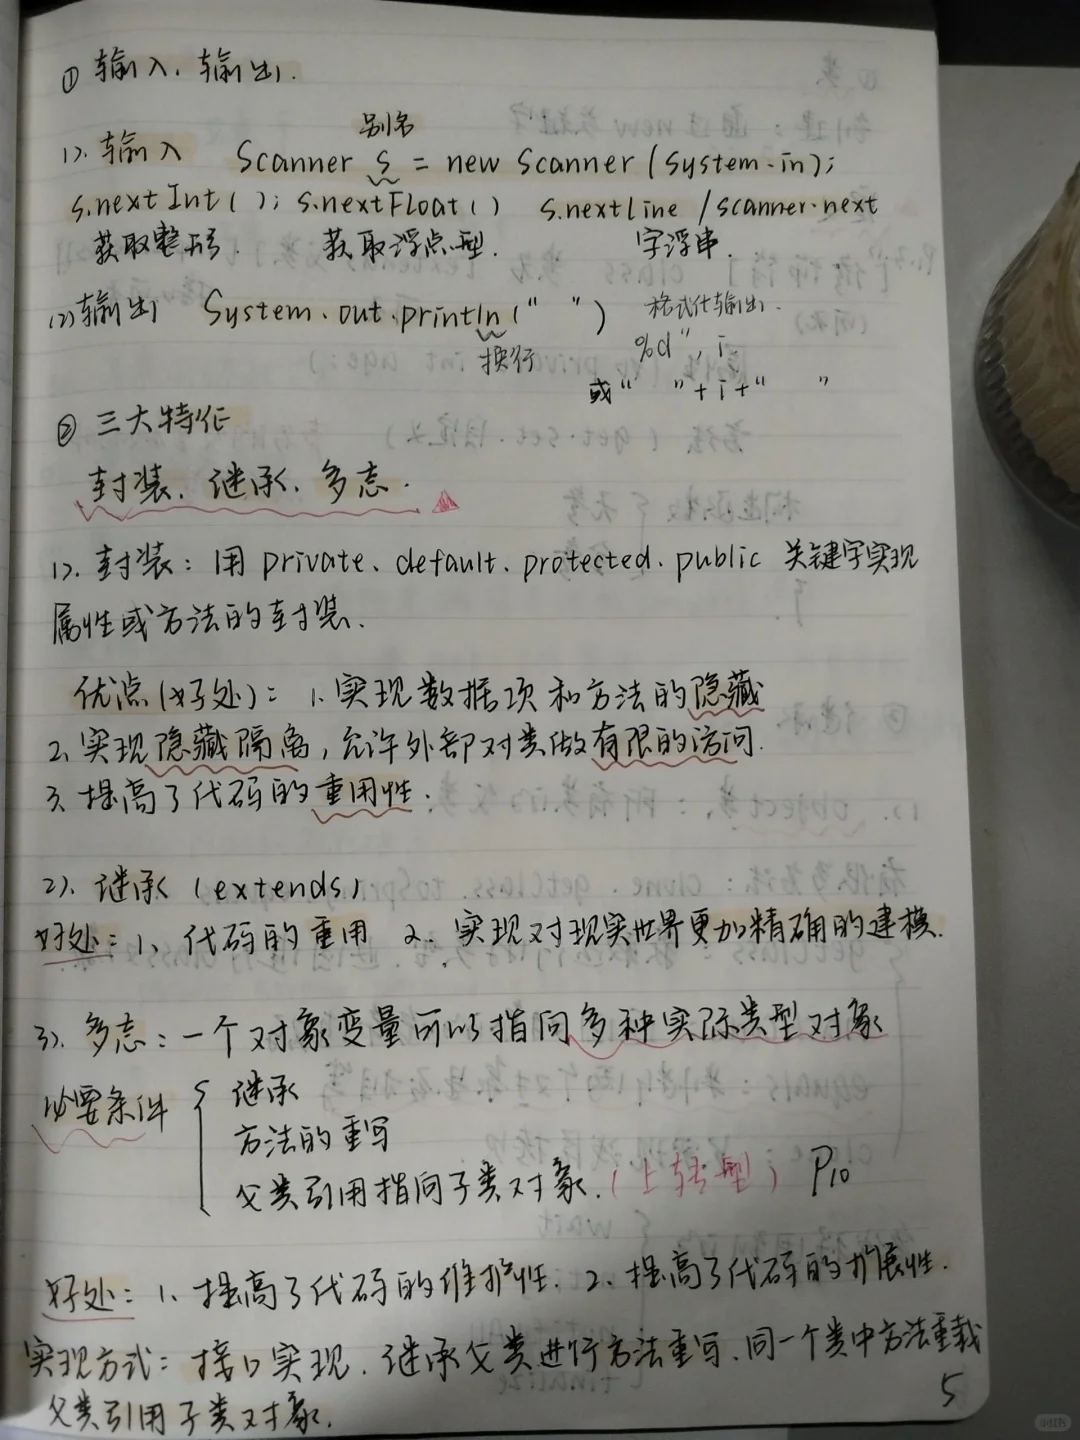 ① 输入、输出.
别名
1). 输入 Scanner s = new Scanner (System.in);
s.nextInt(); s.nextFloat() s.nextline /scanner.next
获取整形. 获取浮点型. 字浮串.
(2) 输出 System.out.println(" ") 格式化输出.
换行 %d", i
或" "+i+" "
② 三大特征
封装、继承、多态.
1). 封装: 用 private、default、protected、public 关键字实现
属性或方法的封装.
优点(好处): 1. 实现数据项和方法的隐藏
2. 实现隐藏隔离, 允许外部对类做有限的访问.
3. 提高了代码的重用性.
2). 继承 (extends)
好处: 1、代码的重用 2. 实现对现实世界更加精确的建模.
3). 多态: 一个对象变量可以指向多种实际类型对象
必要条件 { 继承
方法的重写
父类引用指向子类对象. (上转型) P10
好处: 1、提高了代码的维护性. 2、提高了代码的扩展性.
实现方式: 接口实现、继承父类进行方法重写、同一个类中方法重载
父类引用子类对象.
5
小红书